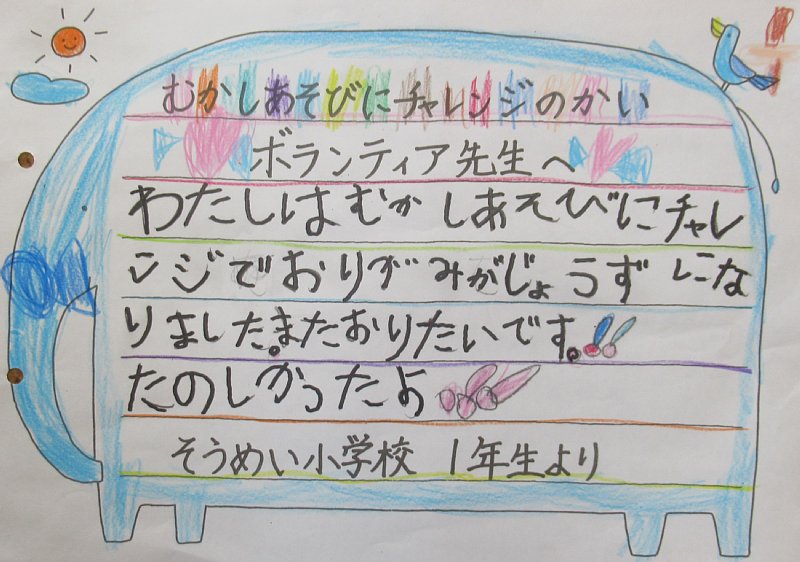 むかしあそびにチャレンジのかい
ボランティア先生へ
わたしはむかしあそびにチャレ
ンジでおりがみがじょうずにな
りました。またおりたいです。!!
たのしかったよ!!!
そうめい小学校 1年生より